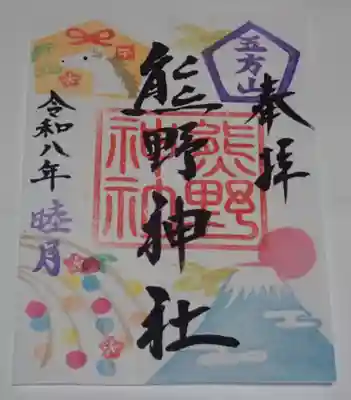 五方山
奉拝
熊野神社
熊野
神社
令和八年
睦月